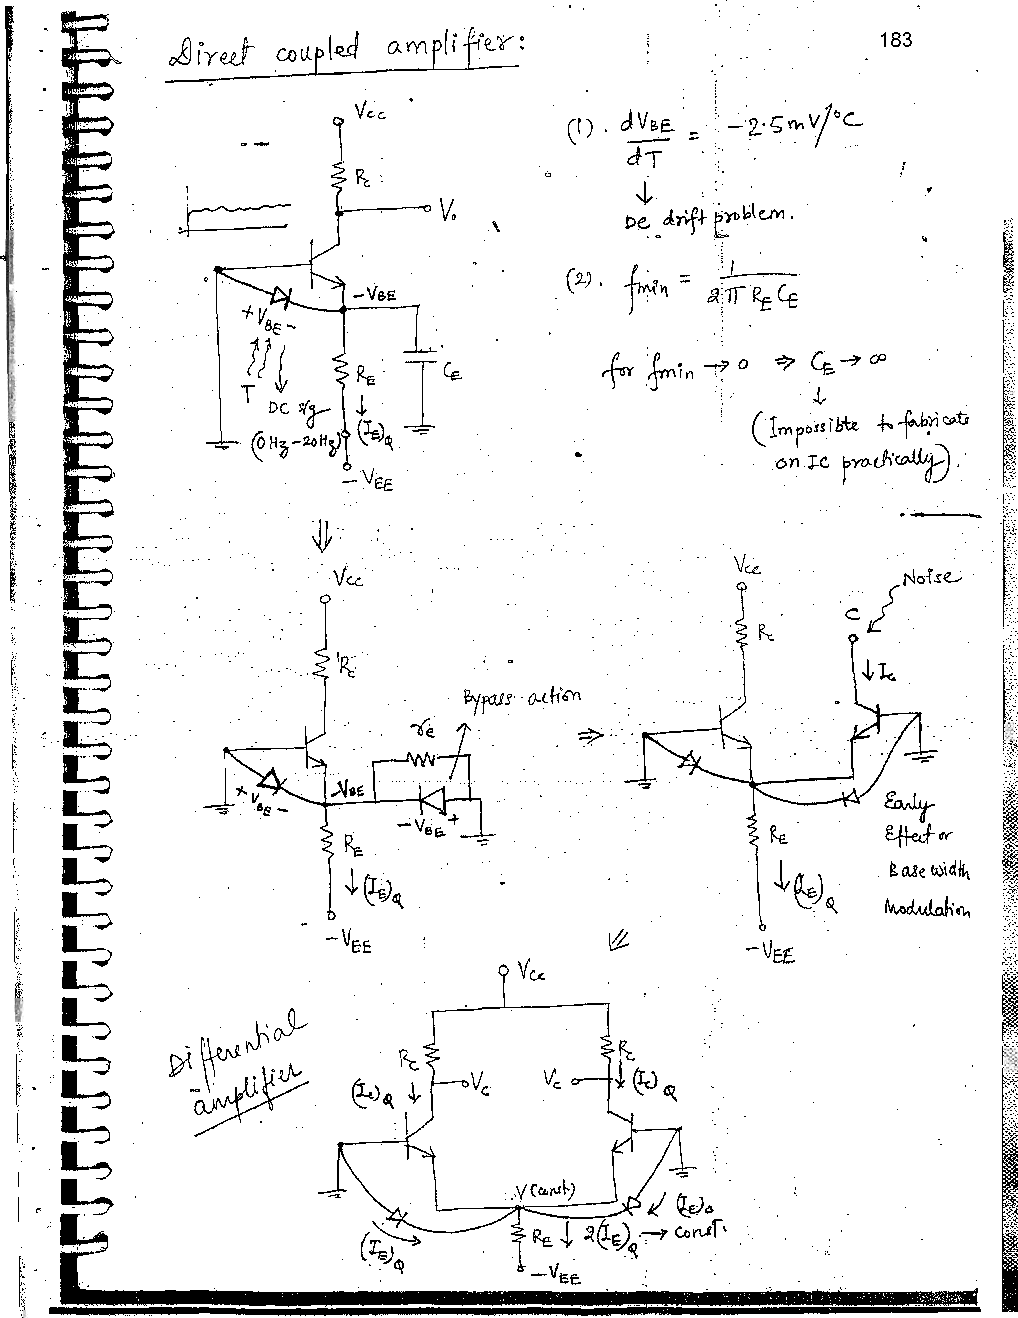 183
Direct coupled amplifier:
Vcc
Rc
Vo
-VBE
+ VBE -
T
DC sig
(0Hz-20Hz)
RE
(IE)Q
CE
-VEE
(1). dVBE/dT = -2.5mV/°C
↓
DC drift problem.
(2). fmin = 1/2π RE CE
for fmin → 0 ⇒ CE → ∞
↓
(Impossible to fabricate
on IC practically).
⇓
Vcc
Rc
Bypass action
re
-VBE
+ VBE -
- VBE +
RE
↓ (IE)Q
-VEE
⇒
Vcc
Noise
C
Rc
↓ Ic
RE
↓ (IE)Q
-VEE
Early
Effect or
Base width
Modulation
Vcc
Differential
amplifier
Rc
Rc
(Ic)Q ↓
Vc
Vc
↓ (Ic)Q
V (const)
(IE)Q
(IE)Q
RE ↓ 2(IE)Q → const.
-VEE